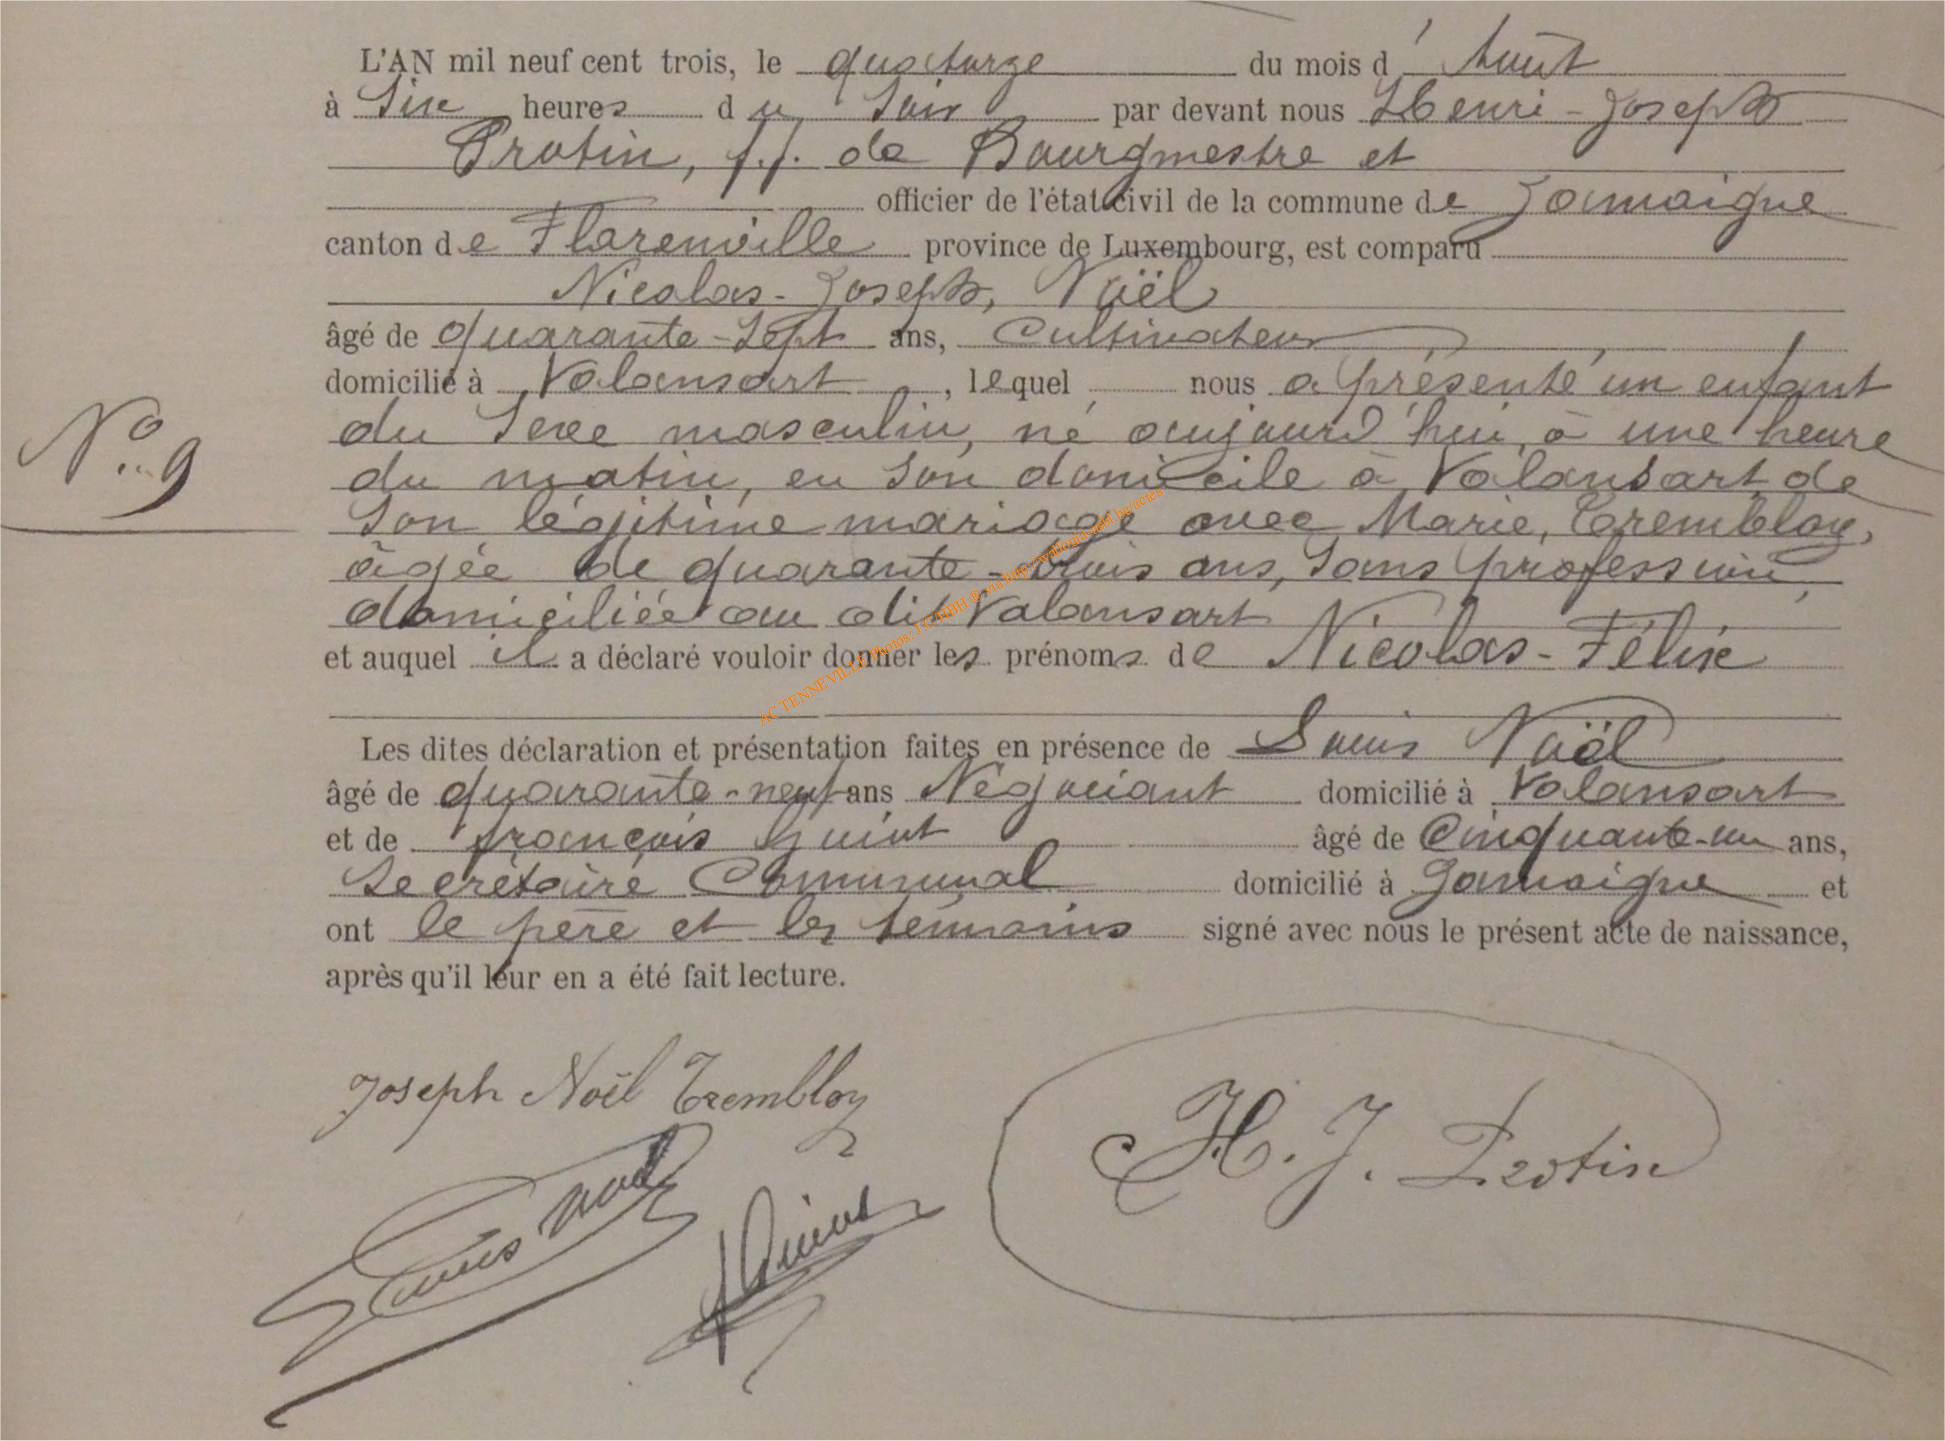 L'AN mil neuf cent trois, le quatorze du mois d'Août
à Six heures du Soir par devant nous Henri-Joseph
Protin, f.f. de Bourgmestre et
officier de l'état civil de la commune de Jamoigne
canton de Florenville province de Luxembourg, est comparu
Nicolas-Joseph, Noël
âgé de quarante-Sept ans, Cultivateur,
domicilié à Valansart, lequel nous a présenté un enfant
du Sexe masculin, né aujourd'hui, à une heure
N° 9
du matin, en Son domicile à Valansart de
Son légitime mariage avec Marie, Trembloy,
âgée de quarante-trois ans, Sans profession,
domiciliée au dit Valansart
et auquel il a déclaré vouloir donner les prénoms de Nicolas-Félix
Les dites déclaration et présentation faites en présence de Louis Noël
âgé de quarante-neuf ans Négociant domicilié à Valansart
et de françois Guiot âgé de Cinquante-un ans,
Secrétaire Communal domicilié à Jamoigne et
ont le père et les témoins signé avec nous le présent acte de naissance,
après qu'il leur en a été fait lecture.
Joseph Noël Trembloy
H. J. Protin
Louis Noël